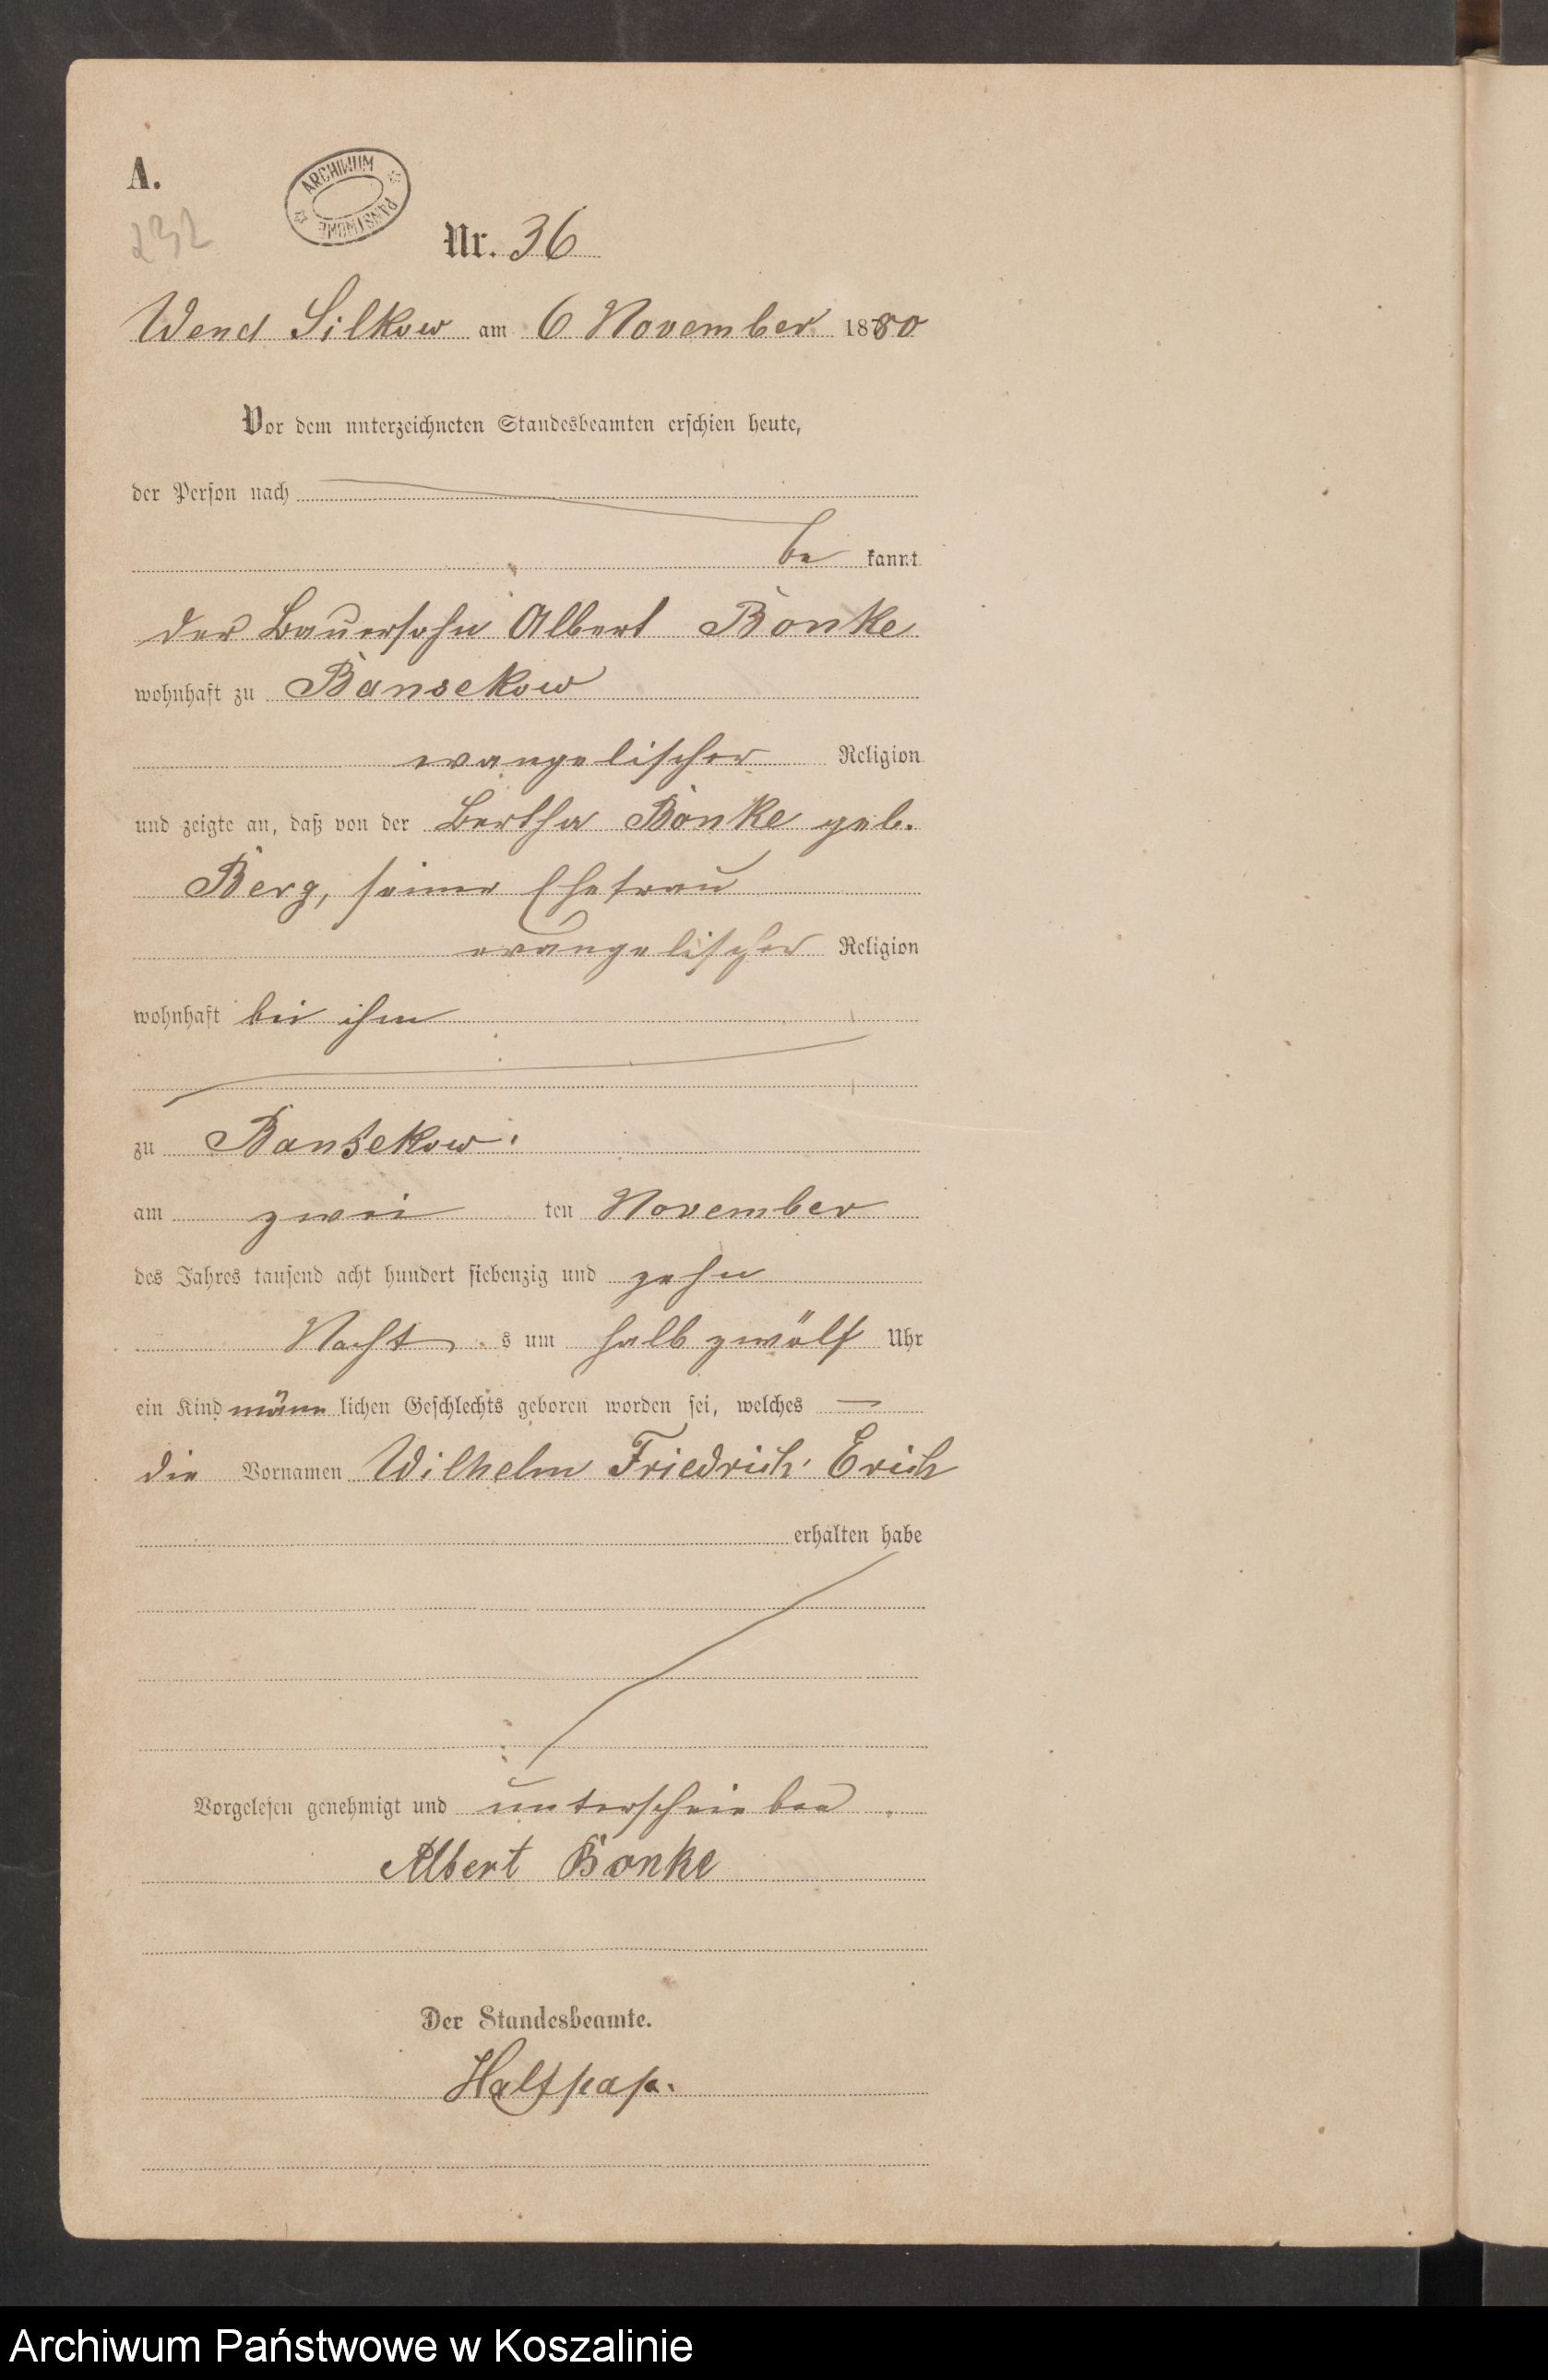 A.
ARCHIWUM PAŃSTWOWE
232
Nr. 36
Wend Silkow am 6 November 1880
Vor dem unterzeichneten Standesbeamten erschien heute,
der Person nach
be kannt
der Bauersohn Albert Bonke
wohnhaft zu Bansekow
evangelischer Religion
und zeigte an, daß von der Bertha Bonke geb.
Berg, seiner Ehefrau
evangelischer Religion
wohnhaft bei ihm
zu Bansekow
am zwei ten November
des Jahres tausend acht hundert siebenzig und zehn
Nacht s um halb zwölf Uhr
ein Kind männ lichen Geschlechts geboren worden sei, welches —
die Vornamen Wilhelm Friedrich Erich
erhalten habe
Vorgelesen genehmigt und unterschrieben
Albert Bonke
Der Standesbeamte.
Archiwum Państwowe w Koszalinie